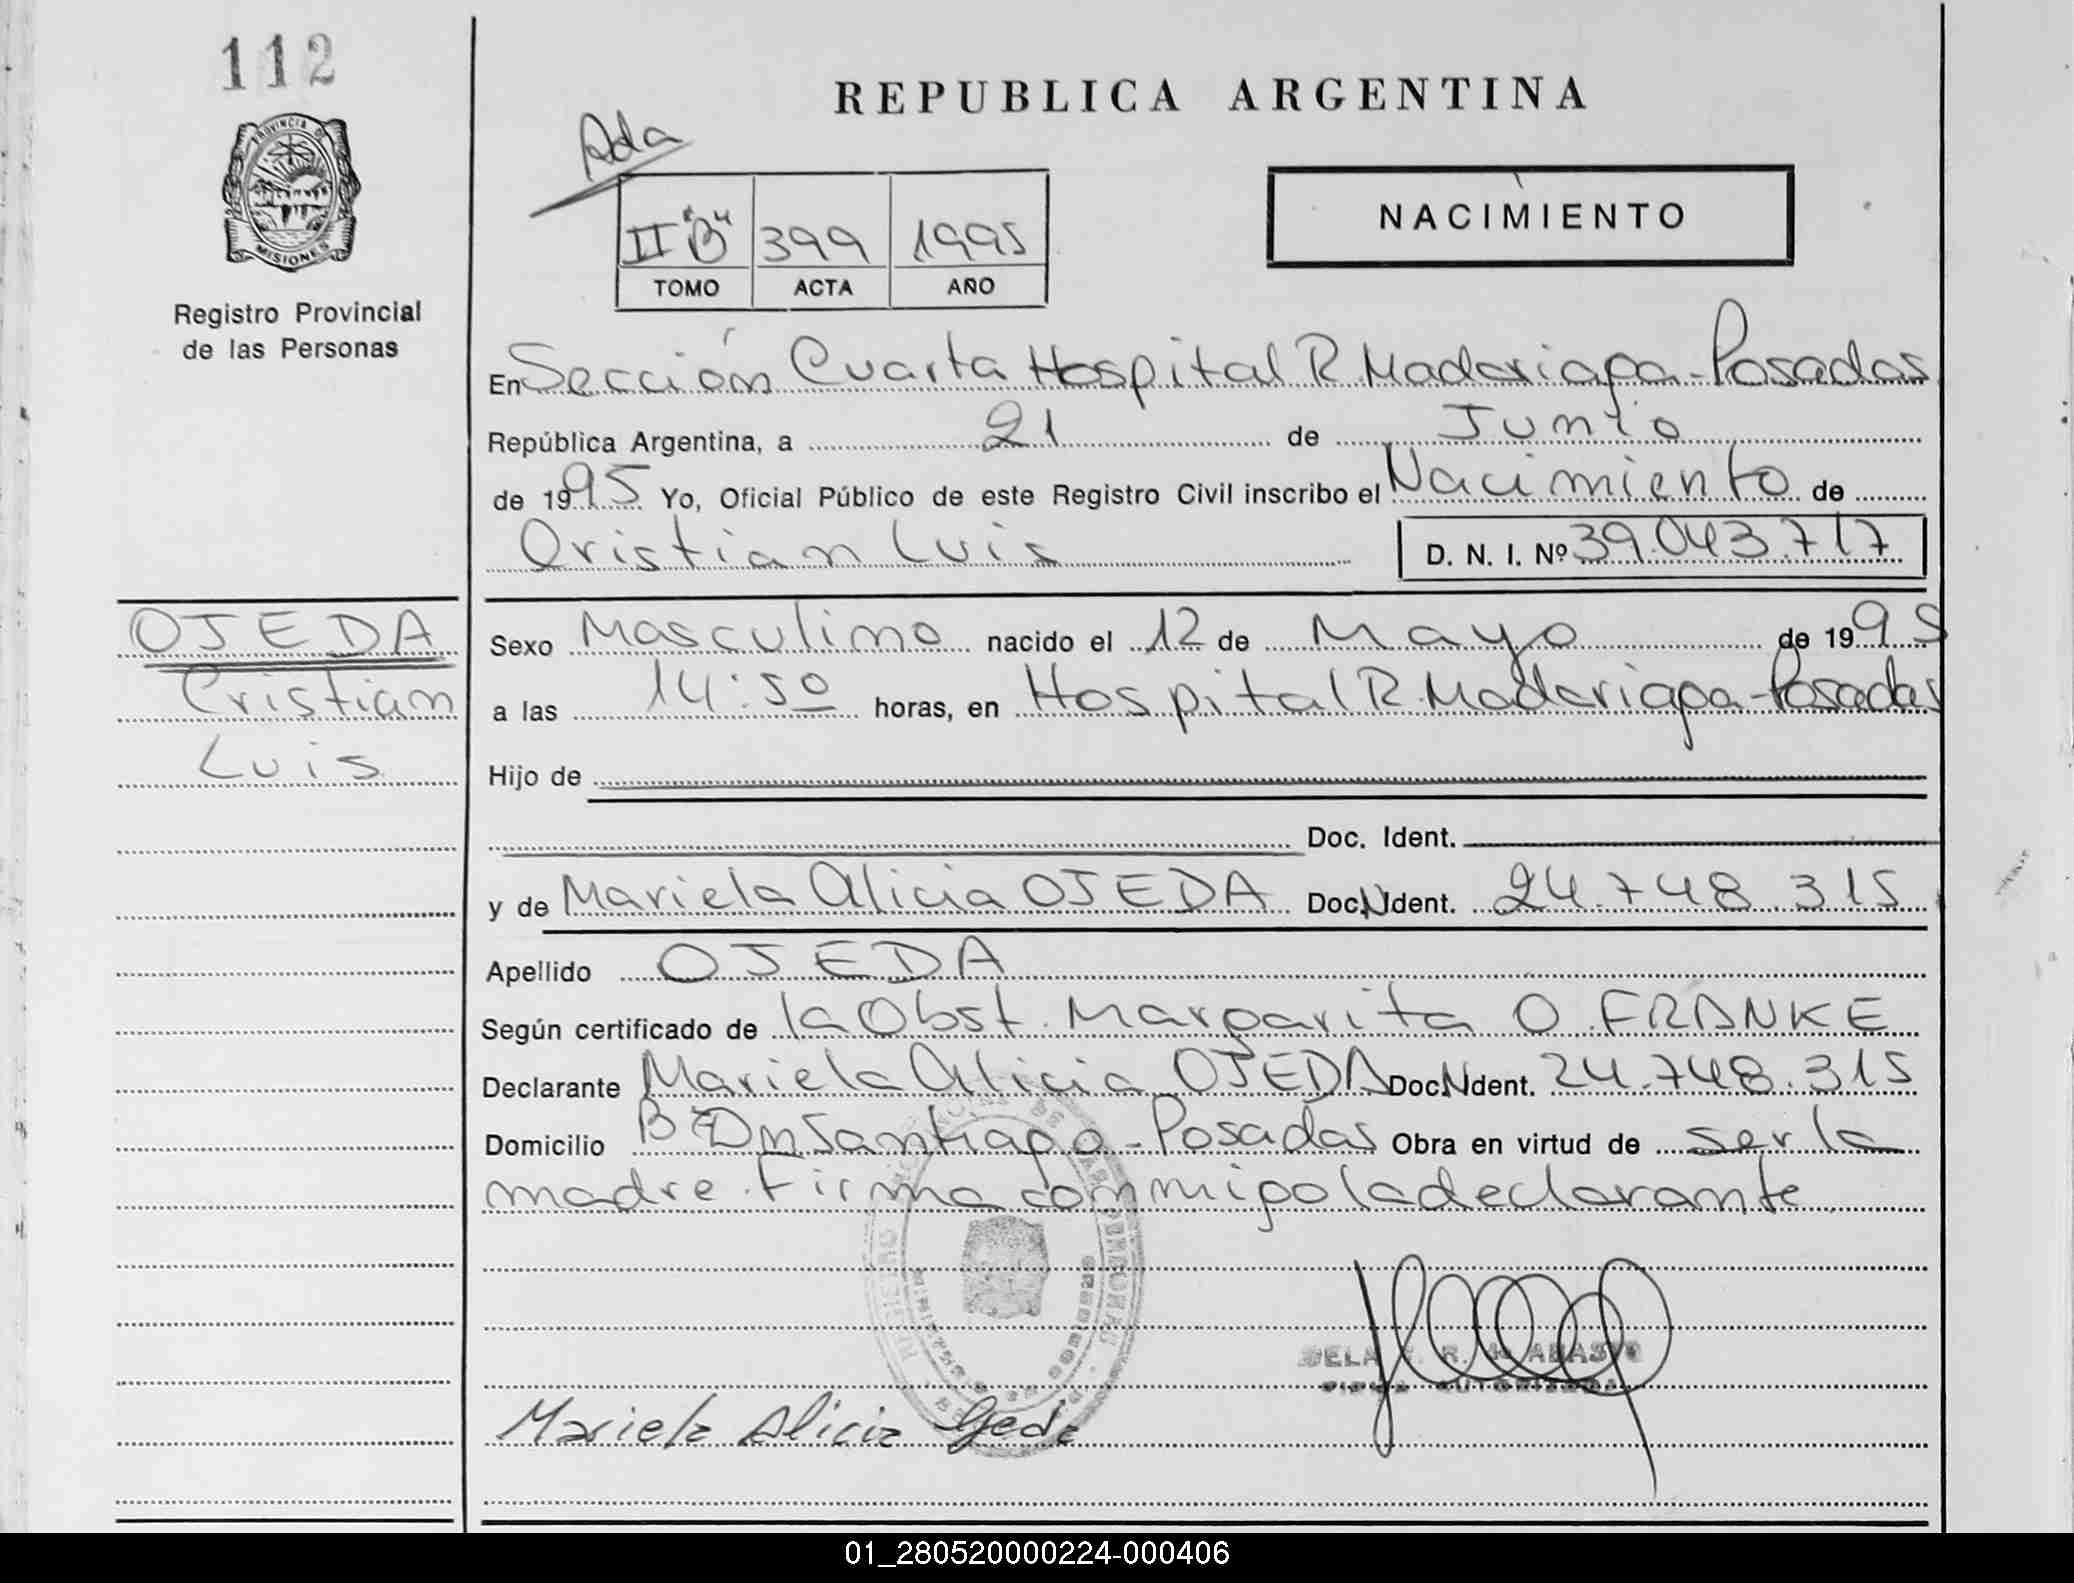 112
REPUBLICA ARGENTINA
Ada
PROVINCIA DE
MISIONES
II "B" 399 1995
TOMO ACTA AÑO
NACIMIENTO
Registro Provincial
de las Personas
En Sección Cuarta Hospital R. Madariaga - Posadas
República Argentina, a 21 de Junio
de 1995 Yo, Oficial Público de este Registro Civil inscribo el Nacimiento de
Cristian Luis D. N. I. Nº 39.043.717
OJEDA
Cristian
Luis
Sexo Masculino nacido el 12 de Mayo de 1995
a las 14:50 horas, en Hospital R. Madariaga - Posadas
Hijo de
Doc. Ident.
y de Mariela Alicia OJEDA Doc. N Ident. 24.748.315
Apellido OJEDA
Según certificado de la Obst. Margarita O. FRANKE
Declarante Mariela Alicia OJEDA Doc. N Ident. 24.748.315
Domicilio Bº Dn Santiago - Posadas Obra en virtud de ser la
madre. Firma conmigo la declarante
Mariela Alicia Ojeda
01_280520000224-000406